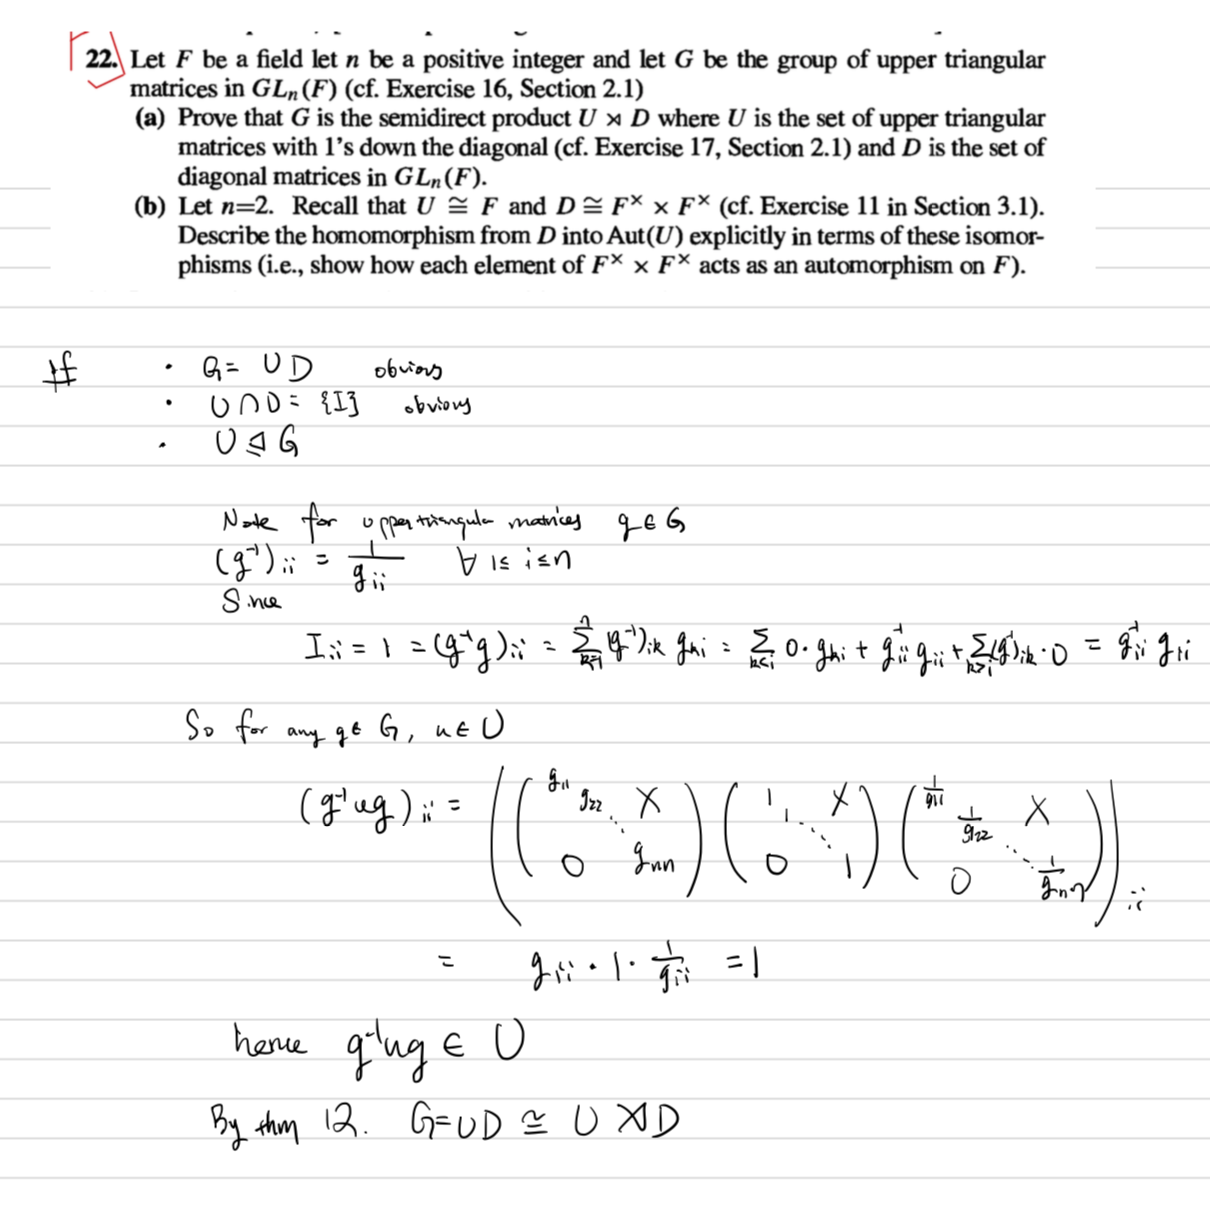 22. Let F be a field let n be a positive integer and let G be the group of upper triangular
matrices in GLₙ(F) (cf. Exercise 16, Section 2.1)
(a) Prove that G is the semidirect product U ⋊ D where U is the set of upper triangular
matrices with 1's down the diagonal (cf. Exercise 17, Section 2.1) and D is the set of
diagonal matrices in GLₙ(F).
(b) Let n=2. Recall that U ≅ F and D ≅ F× × F× (cf. Exercise 11 in Section 3.1).
Describe the homomorphism from D into Aut(U) explicitly in terms of these isomor-
phisms (i.e., show how each element of F× × F× acts as an automorphism on F).
pf · G = UD obvious
· U∩D = {I} obvious
· U ⊴ G
Note for upper triangular matrices g ∈ G
(g⁻¹)ᵢᵢ = 1/gᵢᵢ ∀ 1≤ i≤n
Since
Iᵢᵢ = 1 = (g⁻¹g)ᵢᵢ = Σₖ₌₁ⁿ (g⁻¹)ᵢₖ gₖᵢ = Σₖ<ᵢ 0·gₖᵢ + g⁻¹ᵢᵢ gᵢᵢ + Σₖ>ᵢ (g⁻¹)ᵢₖ·0 = g⁻¹ᵢᵢ gᵢᵢ
So for any g∈ G, u∈ U
(g⁻¹ug)ᵢᵢ = ((g₁₁ g₂₂ ⋱ gₙₙ X 0) (1 1 ⋱ 1 X 0) (1/g₁₁ 1/g₂₂ ⋱ 1/gₙₙ X 0))ᵢᵢ
= gᵢᵢ · 1 · 1/gᵢᵢ = 1
hence g⁻¹ug ∈ U
By thm 12. G=UD ≅ U ⋊ D